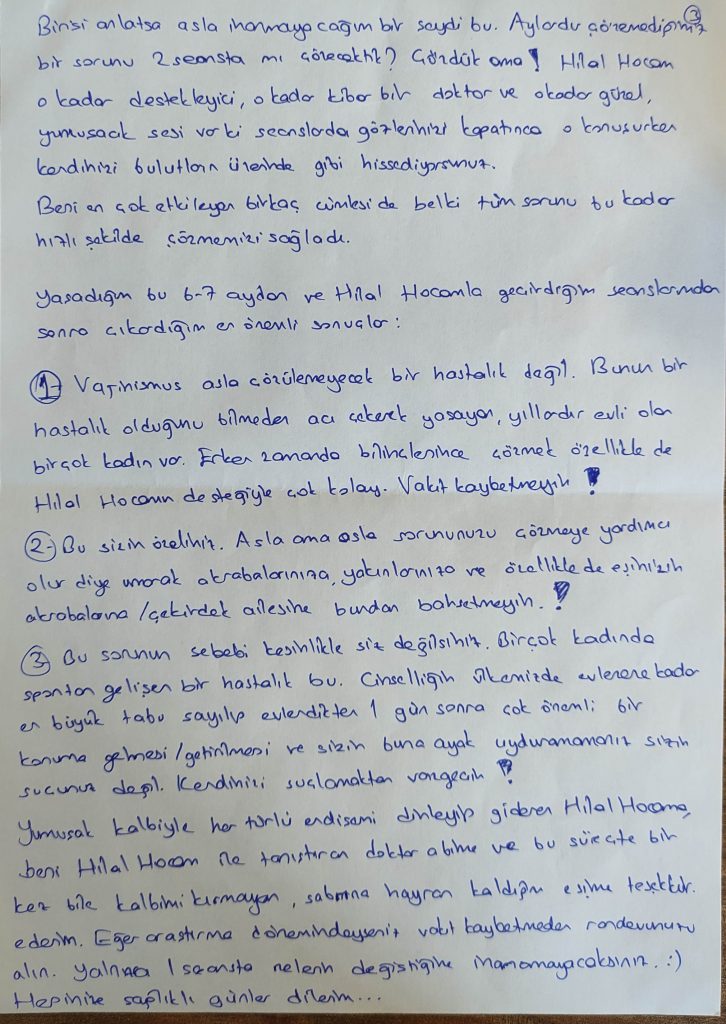 Birisi anlatsa asla inanmayacağım bir şeydi bu. Aylardır çözemediğimiz
3
bir sorunu 2 seansta mı çözecektik? Çözdük ama! Hilal Hocam
o kadar destekleyici, o kadar kibar bir doktor ve o kadar güzel,
yumuşacık sesi var ki seanslarda gözlerinizi kapatınca o konuşurken
kendinizi bulutların üzerinde gibi hissediyorsunuz.
Beni en çok etkileyen birkaç cümlesi de belki tüm sorunu bu kadar
hızlı şekilde çözmemizi sağladı.
Yaşadığım bu 6-7 aydan ve Hilal Hocamla geçirdiğim seanslarımdan
sonra çıkardığım en önemli sonuçlar:
1- Vajinismus asla çözülemeyecek bir hastalık değil. Bunun bir
hastalık olduğunu bilmeden acı çekerek yaşayan, yıllardır evli olan
birçok kadın var. Erken zamanda bilinçlenince çözmek özellikle de
Hilal Hocanın desteğiyle çok kolay. Vakit kaybetmeyin!
2- Bu sizin özeliniz. Asla ama asla sorununuzu çözmeye yardımcı
olur diye umarak akrabalarınıza, yakınlarınıza ve özellikle de eşinizin
akrabalarına/çekirdek ailesine bundan bahsetmeyin.!
3 Bu sorunun sebebi kesinlikle siz değilsiniz. Birçok kadında
spontan gelişen bir hastalık bu. Cinselliğin ülkemizde evlenene kadar
en büyük tabu sayılıp evlendikten 1 gün sonra çok önemli bir
konuma gelmesi/getirilmesi ve sizin buna ayak uyduramamanız sizin
suçunuz değil. Kendinizi suçlamaktan vazgeçin!
Yumuşak kalbiyle her türlü endişemi dinleyip gideren Hilal Hocama,
beni Hilal Hocam ile tanıştıran doktor abime ve bu süreçte bir
kez bile kalbimi kırmayan, sabrına hayran kaldığım eşime teşekkür
ederim. Eğer araştırma dönemindeyseniz vakit kaybetmeden randevunuzu
alın. Yalnızca 1 seansta nelerin değiştiğine inanamayacaksınız. :)
Hepinize sağlıklı günler dilerim...